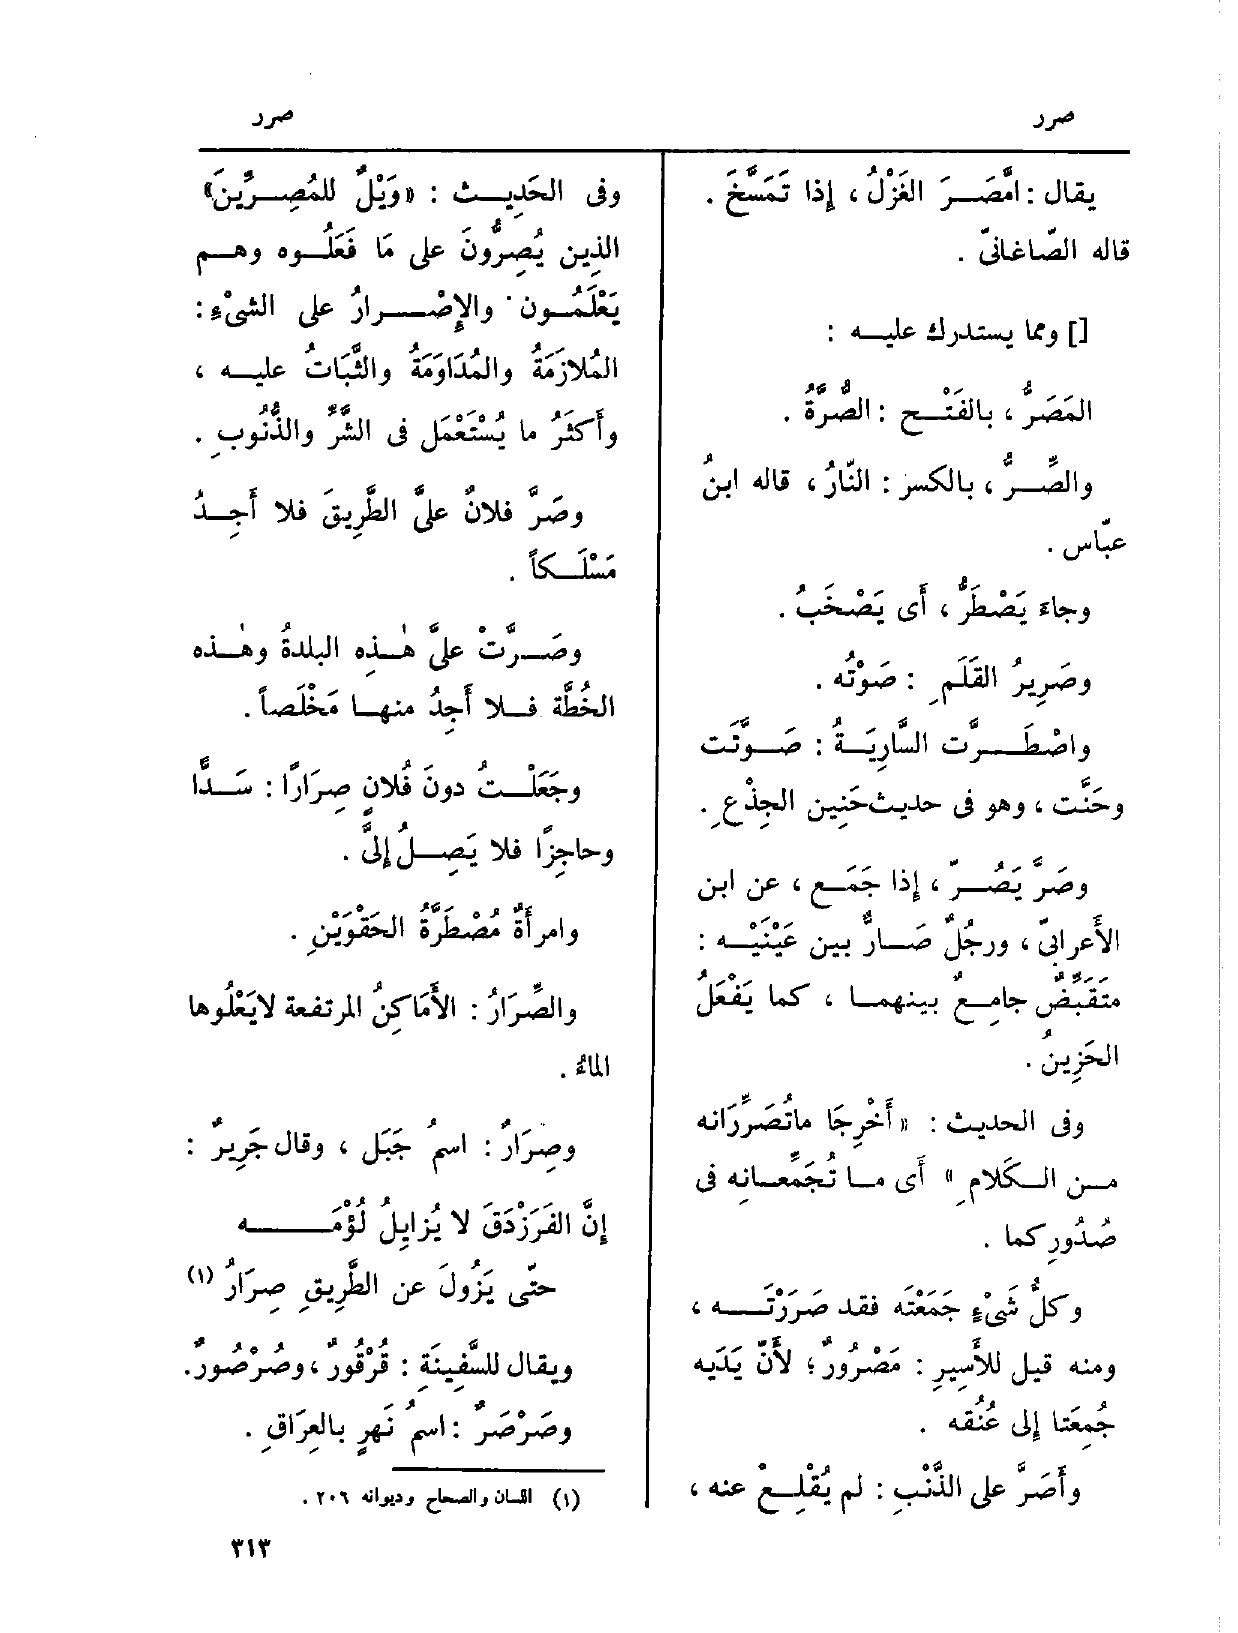 صرر
صرر
يقال : امَّصَـرَ الغَزْلُ ، إذا تَمَسَّخَ .
قاله الصّاغانىّ .
[] ومما يستدرك عليه :
المَصَرُّ ، بالفَتْح : الصُّرَّةُ .
والصِّرُّ ، بالكسر : النّارُ ، قاله ابنُ
عبّاس .
وجاءَ يَصْطَرُّ ، أَى يَصْخَبُ .
وصَرِيرُ القَلَمِ : صَوْتُه .
واصْطَرَّت السَّارِيَةُ : صَوَّتَت
وحَنَّت ، وهو فى حديث حَنِين الجِذْعِ .
وصَرَّ يَصُرّ ، إذا جَمَع ، عن ابن
الأَعرابىّ ، ورجُلٌ صَارٌّ بين عَيْنَيْه :
متَقَبِّضٌ جامِعٌ بينهما ، كما يَفْعَلُ
الحَزِينُ .
وفى الحديث : « أَخْرِجَا ماتُصَرِّرَانه
من الكَلامِ » أَى ما تُجَمِّعانِه فى
صُدُوركما .
وكلُّ شَىْءٍ جَمَعْتَه فقد صَرَرْتَه ،
ومنه قيل للأَسِيرِ : مَصْرُورٌ ؛ لأَنّ يَدَيه
جُمِعَتا إلى عُنُقه .
وأَصَرَّ على الذَّنْبِ : لم يُقْلِعْ عنه ،
وفى الحَدِيث : «وَيْلٌ للمُصِرِّينَ»
الذين يُصِرُّونَ على مَا فَعَلُوه وهم
يَعْلَمُون . والإِصْرارُ على الشىْءِ :
المُلازَمَةُ والمُدَاوَمَةُ والثَّبَاتُ عليه ،
وأَكثَرُ ما يُسْتَعْمَل فى الشَّرِّ والذُّنُوبِ .
وصَرَّ فلانٌ علىَّ الطَّرِيقَ فلا أَجِدُ
مَسْلَكاً .
وصَرَّتْ علىَّ هٰذِه البلدةُ وهٰذه
الخُطَّة فلا أَجِدُ منها مَخْلَصاً .
وجَعَلْتُ دونَ فُلانٍ صِرَارًا : سَدًّا
وحاجِزًا فلا يَصِلُ إلىَّ .
وامرأَةٌ مُصْطَرَّةُ الحَقْوَيْنِ .
والصِّرَارُ : الأَمَاكِنُ المرتفعة لايَعْلُوها
الماءُ .
وصِرَارٌ : اسمُ جَبَل ، وقال جَرِيرٌ :
إنَّ الفَرَزْدَقَ لا يُزايِلُ لُؤْمَه
حتّى يَزُولَ عن الطَّرِيقِ صِرَارُ (١)
ويقال للسَّفِينَةِ : قُرْقُورٌ ، وصُرْصُورٌ .
وصَرْصَرٌ : اسمُ نَهرٍ بالعِرَاقِ .
(١) اللسان والصحاح وديوانه ٢٠٦ .
٣١٣